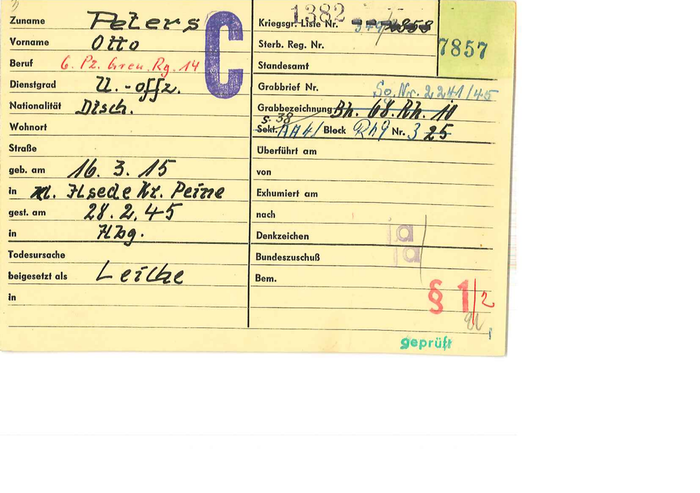 Zuname Peters
Vorname Otto
Beruf 6. Pz. Gren. Rg. 14
Dienstgrad U.-offz.
Nationalität Dtsch.
Wohnort
Straße
geb. am 16. 3. 15
in Kr. Peine
gest. am 28. 2. 45
in Hbg.
Todesursache
beigesetzt als Leiche
in
C
1382
Kriegsgr. Liste Nr.
7857
Sterb. Reg. Nr.
Standesamt
Grabbrief Nr. So. Nr. 2241/45
Grabbezeichnung Bh. 68. Rh. 10
S. 38
Sekt. Block Nr. 3 25
Überführt am
von
Exhumiert am
nach
Denkzeichen a
Bundeszuschuß a
Bem.
§ 1/2
geprüft